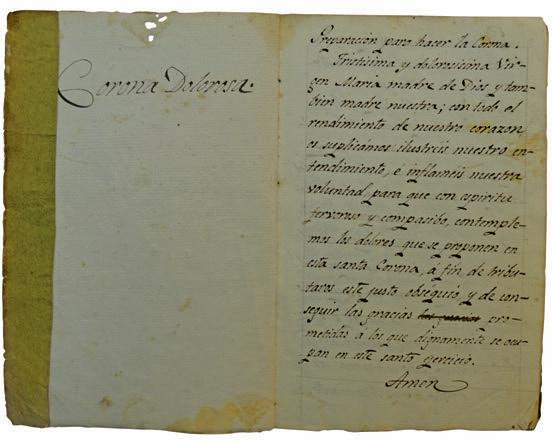 Corona Dolorosa.
Preparación para hacer la Corona.
Tristisima y dolorosisima Vir-
gen Maria madre de Dios y tam-
bien madre nuestra; con todo el
rendimiento de nuestro corazon
os suplicámos ilustréis nuestro en-
tendimiento, é inflameis nuestra
voluntad, para que con espiritu
fervoroso y compasibo, contemple-
mos los dolores que se proponen en
esta santa Corona, á fin de tribu-
taros este justo obséquio, y de con-
seguir las gracias pro-
metidas á los que dignamente se ocu-
pan en este santo ejercicio.
Amen